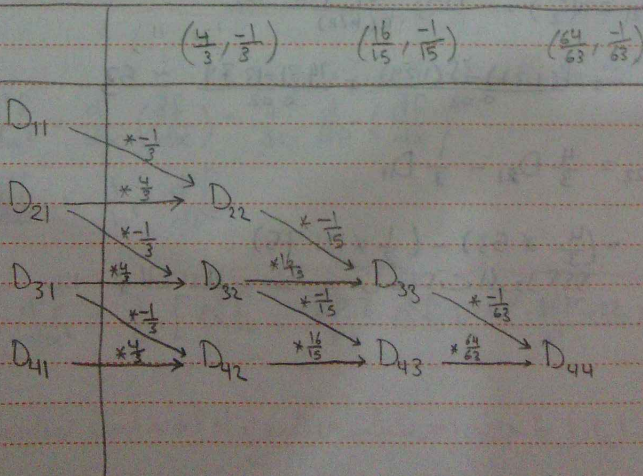 (4/3, -1/3) (16/15, -1/15) (64/63, -1/63)
D11
* -1/3
D21 * 4/3 D22
* -1/3 * -1/15
D31 * 4/3 D32 * 16/15 D33
* -1/3 * -1/15 * -1/63
D41 * 4/3 D42 * 16/15 D43 * 64/63 D44